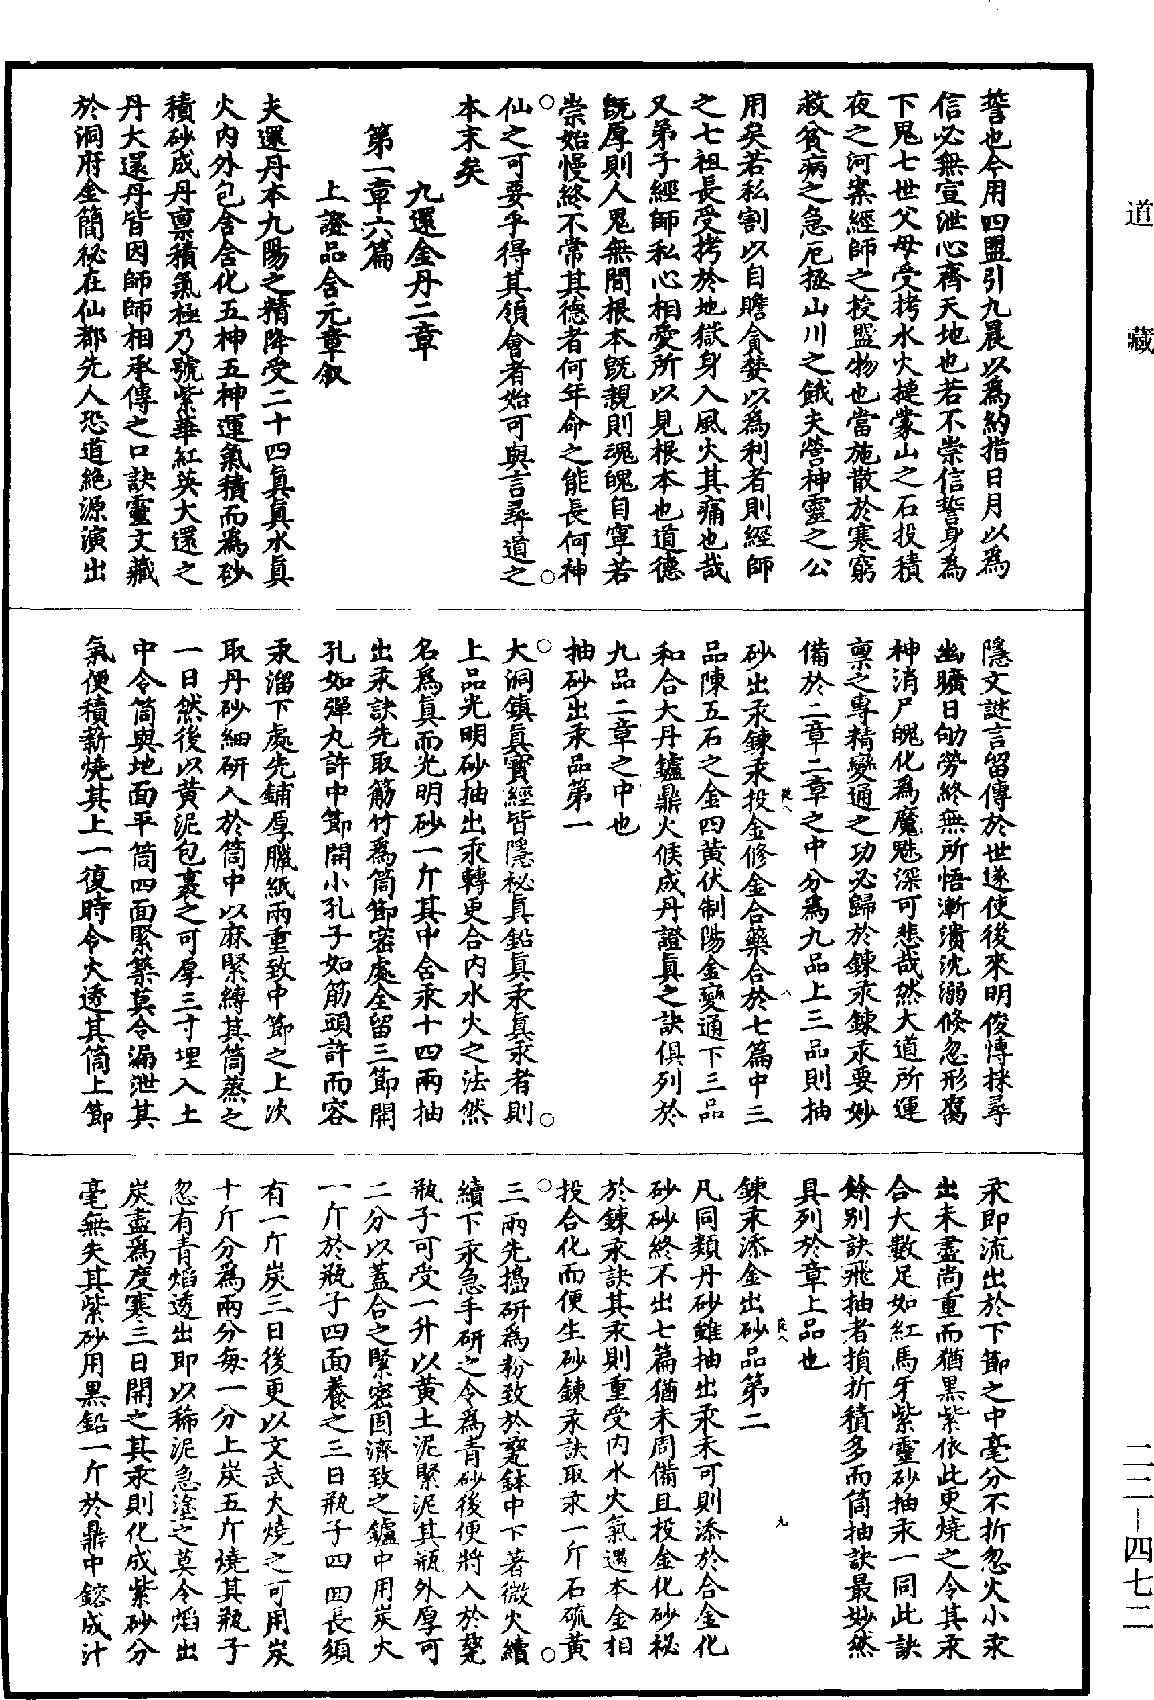 誓也今用四盟引九晨以爲約指日月以爲
信必無宣泄心齊天地也若不崇信誓身爲
下鬼七世父母受拷水火揵蒙山之石投積
夜之河案經師之授盟物也當施散於寒窮
救貧病之急厄拯山川之餓夫營神靈之公
用矣若私割以自贍貪婪以爲利者則經師
之七祖長受拷於地獄身入風火其痛也哉
又弟子經師私心相愛所以見根本也道德
既厚則人鬼無間根本既親則魂魄自寧若
崇始慢終不常其德者何年命之能長何神
仙之可要乎得其領會者始可與言尋道之
本末矣
九還金丹二章
第一章六篇
上證品含元章叙
夫還丹本九陽之精降受二十四眞眞水眞
火內外包含含化五神五神運氣積而爲砂
積砂成丹禀積氣極乃號紫華紅英大還之
丹大還丹皆因師師相承傳之口訣靈文藏
於洞府金簡秘在仙都先人恐道絶源演出
隱文謎言留傳於世遂使後來明俊博採尋
幽曠日劬勞終無所悟漸瀆沈溺倐忽形腐
神消尸魄化爲魔魅深可悲哉然大道所運
禀之專精變通之功必歸於鍊汞鍊汞要妙
備於二章二章之中分爲九品上三品則抽
砂出汞鍊汞投金修金合藥合於七篇中三
品陳五石之金四黄伏制陽金變通下三品
和合大丹鑪鼎火候成丹證眞之訣俱列於
九品二章之中也
抽砂出汞品第一
大洞鎮眞寶經皆隱秘眞鉛眞汞眞汞者則
上品光明砂抽出汞轉更合內水火之法然
名爲眞而光明砂一斤其中含汞十四兩抽
出汞訣先取筋竹爲筒節密處全留三節開
孔如彈丸許中節開小孔子如筋頭許而容
汞溜下處先鋪厚臘紙兩重致中節之上次
取丹砂細研入於筒中以麻緊縛其筒蒸之
一日然後以黄泥包裹之可厚三寸埋入土
中令筒與地面平筒四面緊築莫令漏泄其
氣便積薪燒其上一復時令火透其筒上節
汞即流出於下節之中毫分不折忽火小汞
出未盡尚重而猶黑紫依此更燒之令其汞
合大數足如紅馬牙紫靈砂抽汞一同此訣
餘别訣飛抽者損折積多而筒抽訣最妙然
具列於章上品也
鍊汞添金出砂品第二
凡同類丹砂雖抽出汞未可則添於合金化
砂砂終不出七篇猶未周備且投金化砂祕
於鍊汞訣其汞則重受内水火氣遇本金相
投合化而便生砂鍊汞訣取汞一斤石硫黄
三兩先擣研爲粉致於甆鉢中下著微火續
續下汞急手研之令爲青砂後便將入於甆
瓶子可受一升以黄土泥緊泥其瓶外厚可
二分以蓋合之緊密固濟致之鑪中用炭火
一斤於瓶子四面養之三日瓶子四面長須
有一斤炭三日後更以文武火燒之可用炭
十斤分爲兩分每一分上炭五斤燒其瓶子
忽有青焰透出即以稀泥急塗之莫令焰出
炭盡爲度寒三日開之其汞則化成紫砂分
毫無失其紫砂用黑鉛一斤於鼎中鎔成汁
道藏
二二-四七二